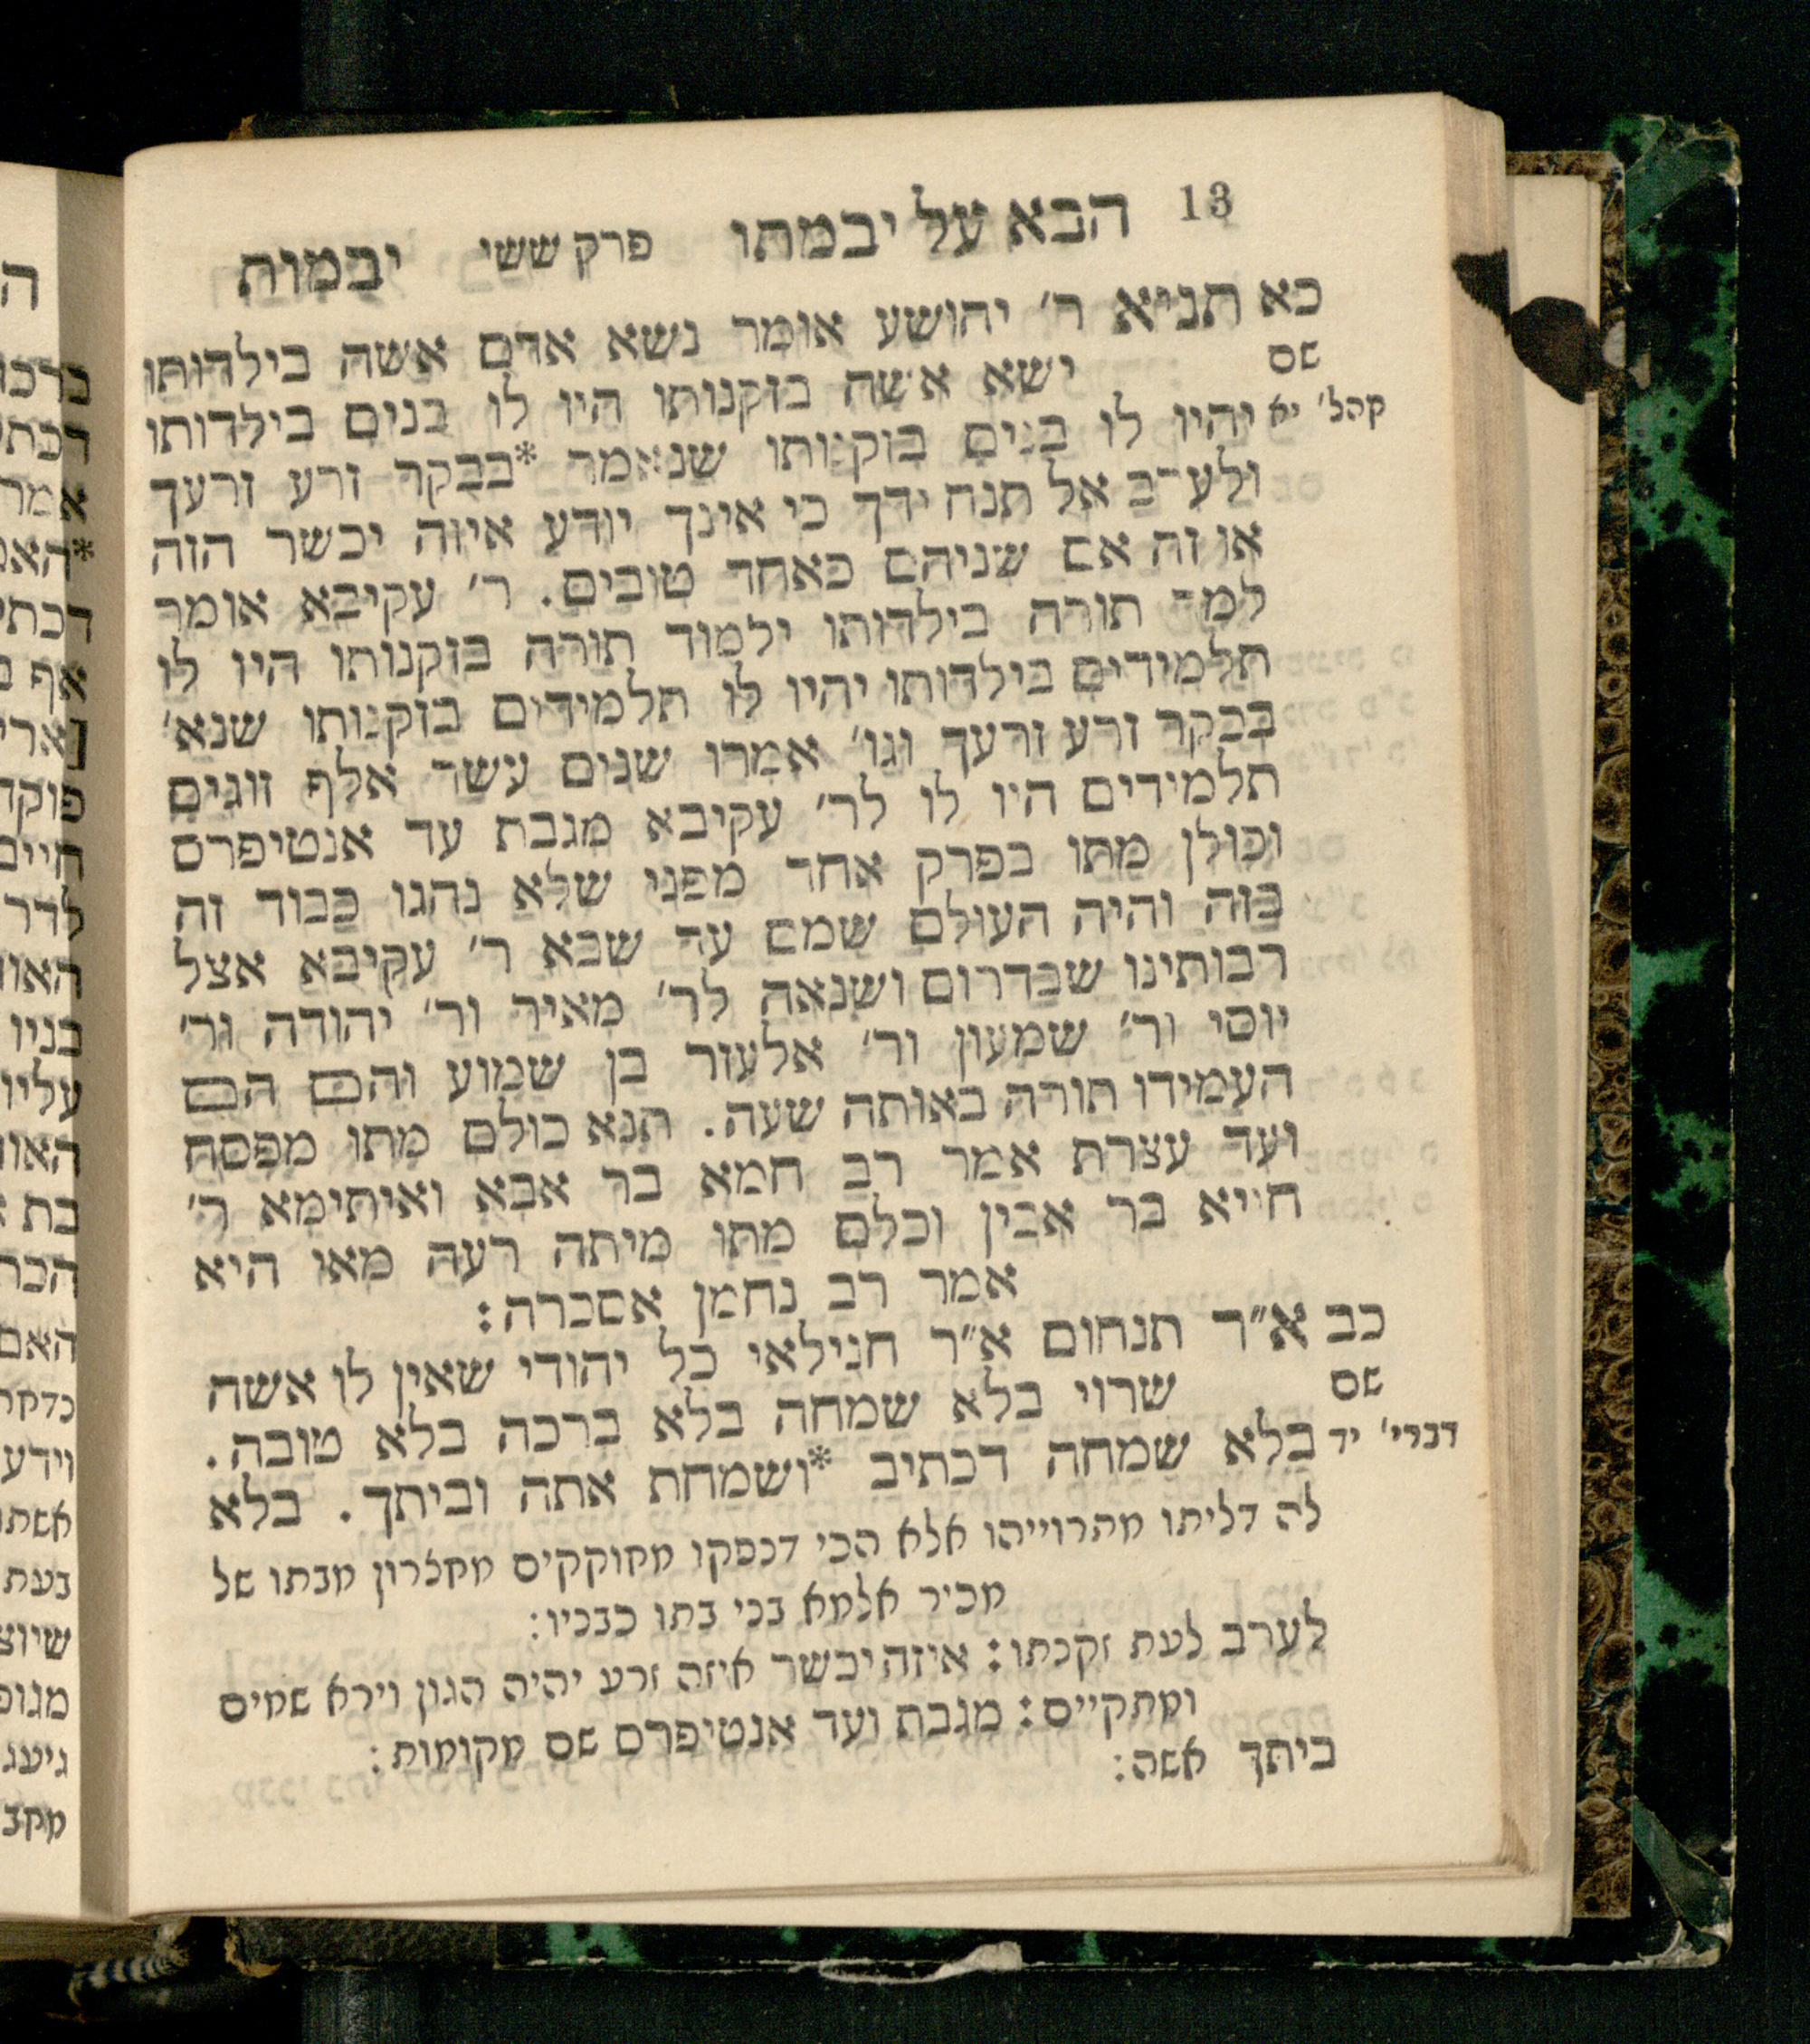 13 הבא על יבמתו פרק ששי יבמות
כא תניא ר׳ יהושע אומר נשא אדם אשה בילדותו
שם ישא אשה בזקנותו היו לו בנים בילדותו
קהל׳ יא יהיו לו בנים בזקנותו שנאמר *בבקר זרע זרעך
ולערב אל תנח ידך כי אינך יודע איזה יכשר הזה
או זה אם שניהם כאחד טובים. ר׳ עקיבא אומר
למד תורה בילדותו ילמוד תורה בזקנותו היו לו
תלמידים בילדותו יהיו לו תלמידים בזקנותו שנא׳
בבקר זרע זרעך וגו׳ אמרו שנים עשר אלף זוגים
תלמידים היו לו לר׳ עקיבא מגבת עד אנטיפרס
וכולן מתו בפרק אחד מפני שלא נהגו כבוד זה
בזה והיה העולם שמם עד שבא ר׳ עקיבא אצל
רבותינו שבדרום ושנאה לר׳ מאיר ור׳ יהודה ור׳
יוסי ור׳ שמעון ור׳ אלעזר בן שמוע והם הם
העמידו תורה באותה שעה. תנא כולם מתו מפסח
ועד עצרת אמר רב חמא בר אבא ואיתימא ר׳
חייא בר אבין וכלם מתו מיתה רעה מאי היא
אמר רב נחמן אסכרה:
כב א״ר תנחום א״ר חנילאי כל יהודי שאין לו אשה
שם שרוי בלא שמחה בלא ברכה בלא טובה.
דברי׳ יד בלא שמחה דכתיב *ושמחת אתה וביתך. בלא
לה דליתו מתרוייהו אלא הכי דנפקו מחוקקים מחצרון מבתו של
מכיר אלמא בני בתו כבניו:
לערב לעת זקנתו: איזה יכשר איזה זרע יהיה הגון וירא שמים
ומתקיים: מגבת ועד אנטיפרס שם מקומות:
ביתך אשה: